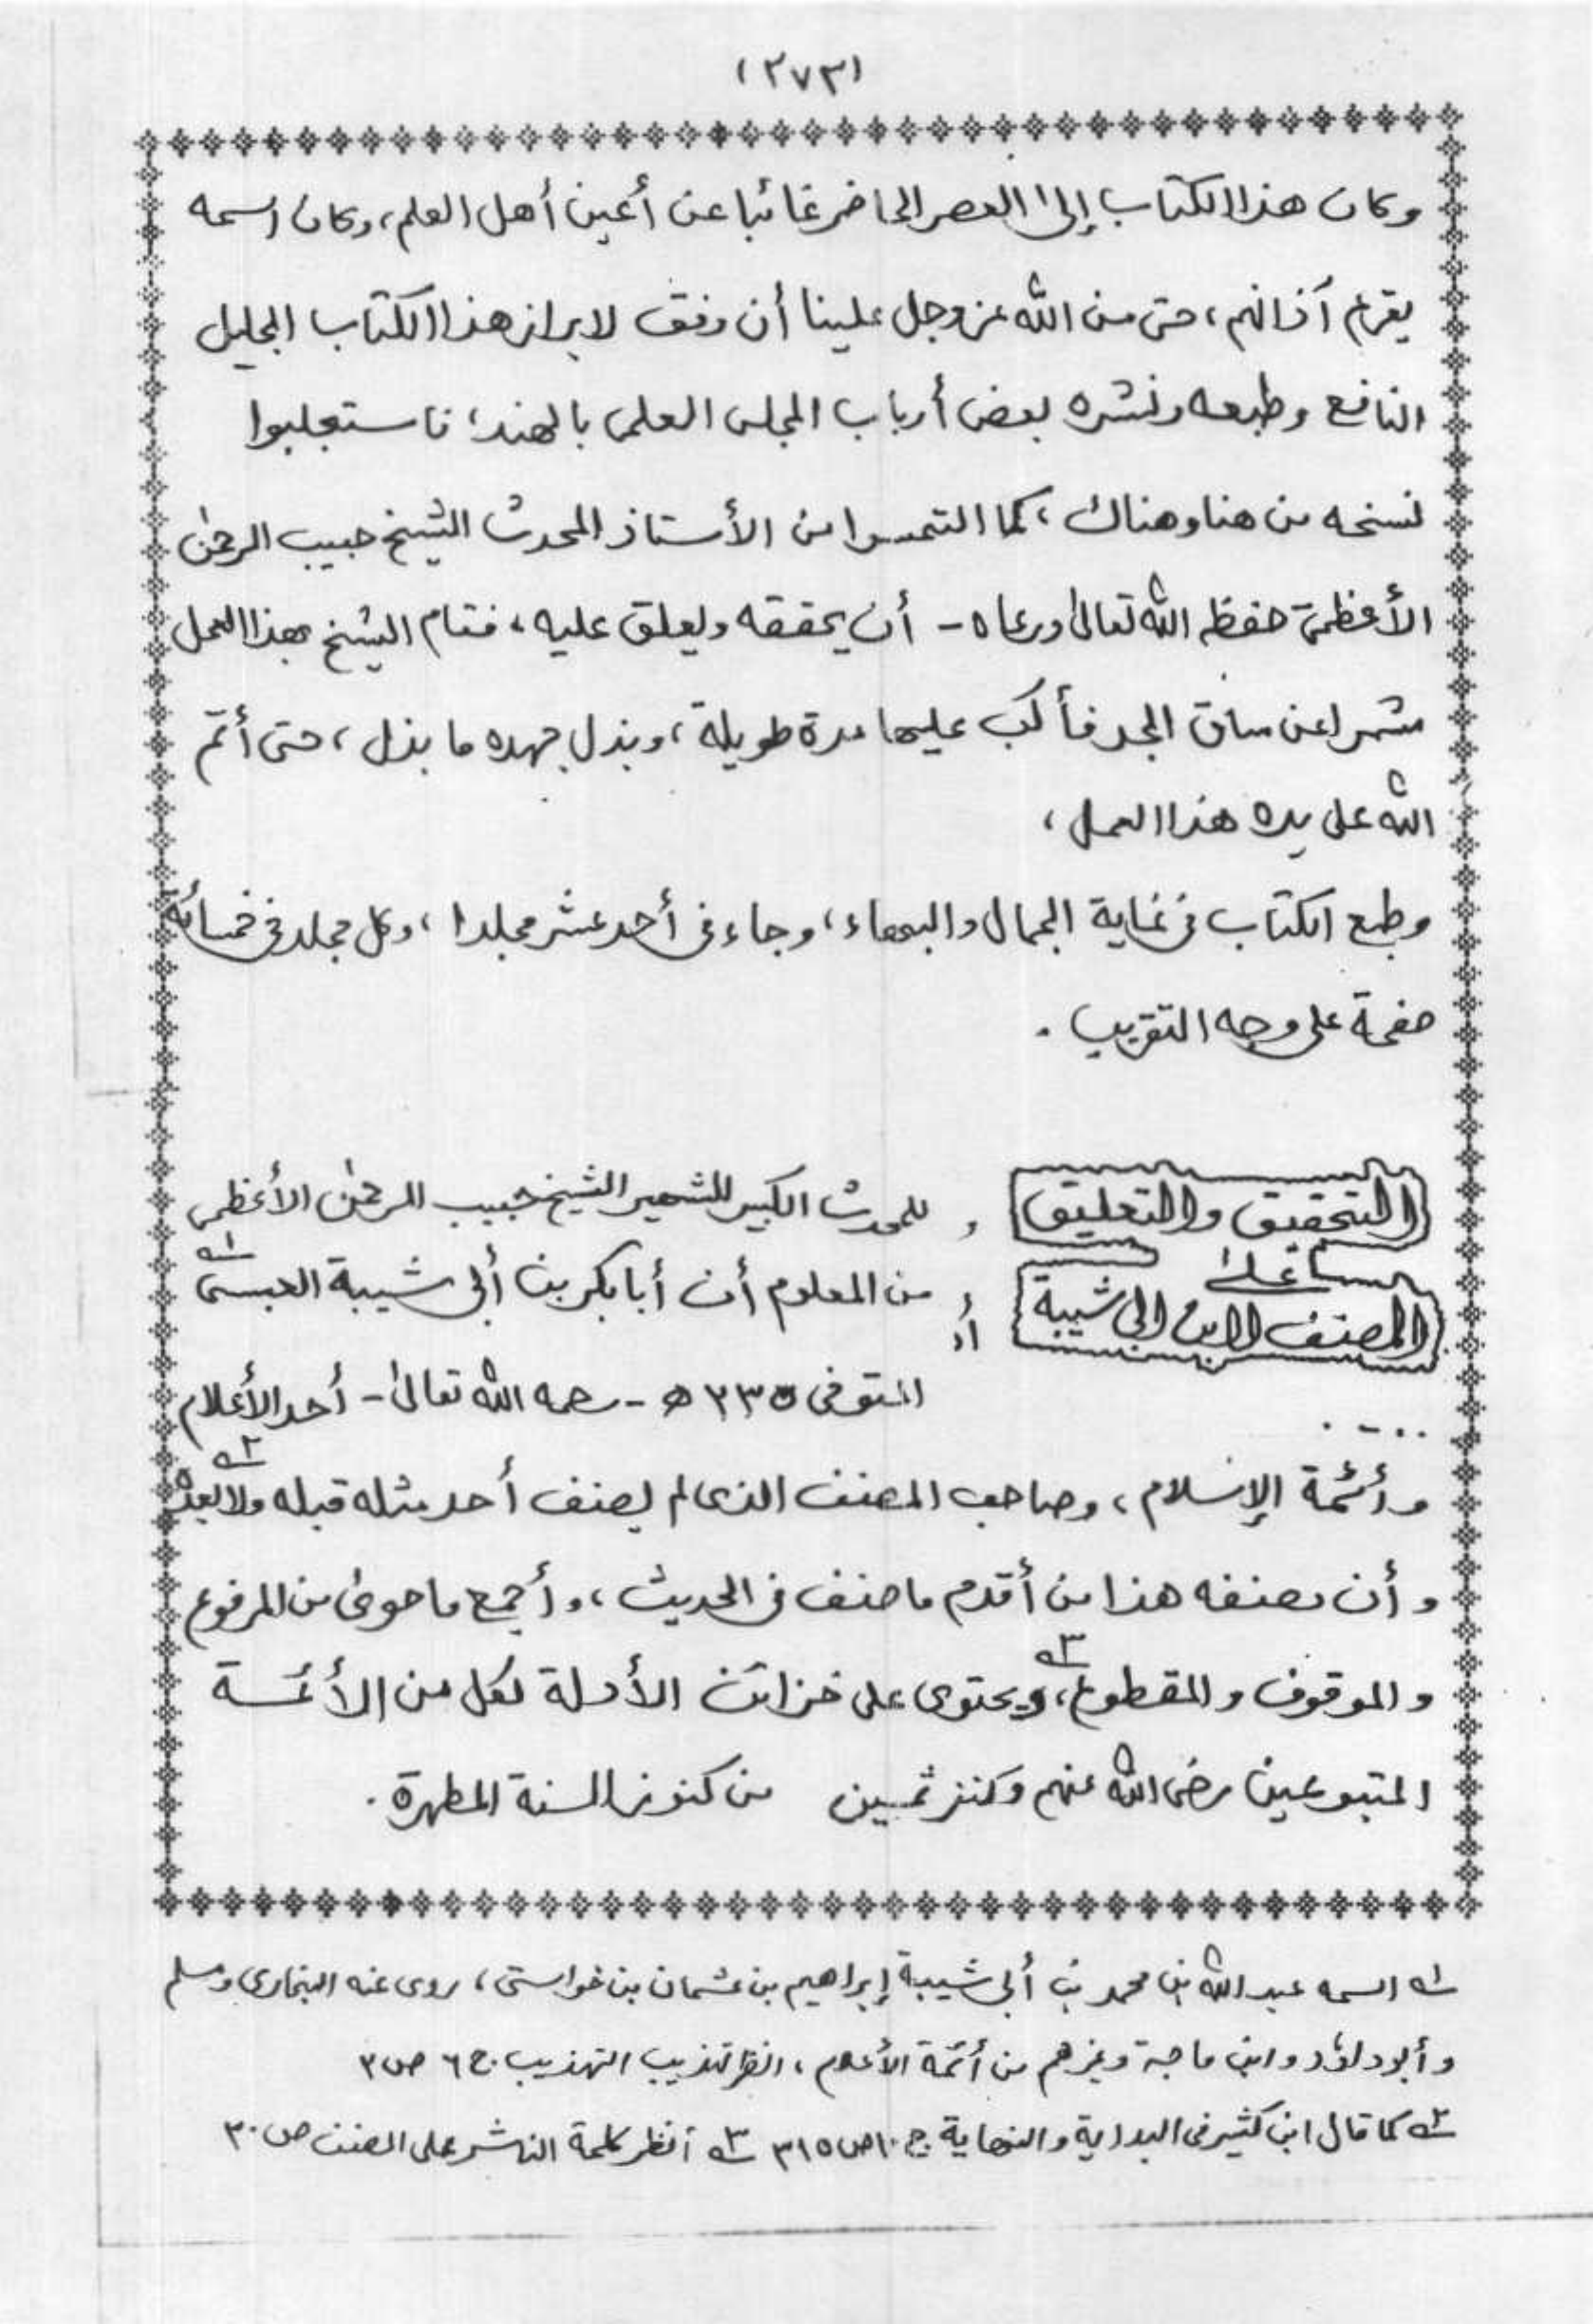 (٢٧٣)
وكان هذا الكتاب إلى العصر الحاضر غائبا عن أعين أهل العلم، وكان اسمه
يقرع آذانهم، حتى من الله عز وجل علينا أن وفق لابراز هذا الكتاب الجليل
النافع وطبعه ونشره بعض أرباب المجلس العلمى بالهند، فاستجلبوا
نسخه من هنا وهناك، كما التمسوا من الأستاذ المحدث الشيخ حبيب الرحمٰن
الأعظمى حفظه الله تعالىٰ ورعاه - أن يحققه ويعلق عليه، فقام الشيخ بهذا العمل
مشمرا عن ساق الجد فأكب عليها مدة طويلة، وبذل جهده ما بذل، حتى أتم
الله على يده هذا العمل،
وطبع الكتاب فى غاية الجمال والبهاء، وجاء فى أحد عشر مجلدا، وكل مجلد فى خمسائة
صفحة على وجه التقريب .
التحقيق والتعليق
علىٰ
المصنف لابن ابى شيبة
للمحدث الكبير للشهير الشيخ حبيب الرحمٰن الأعظمى
من المعلوم أن أبا بكر بن أبى شيبة العبسى ١ه
المتوفى ٢٣٥ ه - رحمه الله تعالىٰ - أحد الأعلام
وأئمة الإسلام، وصاحب المصنف الذى لم يصنف أحد مثله قبله ولا بعده ٢ه
وأن مصنفه هذا من أقدم ما صنف فى الحديث، وأجمع ما حوىٰ من المرفوع
والموقوف والمقطوع ٣ه، ويحتوى على خزائن الأدلة لكل من الأئمة
المتبوعين رضى الله عنهم وكنز ثمين من كنوز السنة المطهرة .
١ه اسمه عبد الله بن محمد بن أبى شيبة إبراهيم بن عثمان بن خواستى، روى عنه البخارى ومسلم
وأبو داؤد وابن ماجة وغيرهم من أئمة الأعلام، انظر تهذيب التهذيب ج ٦ ص ٣
٢ه كما قال ابن كثير فى البداية والنهاية ج ١٠ ص ٣١٥ ٣ه انظر كلمة الناشر على المصنف ص ٣٠